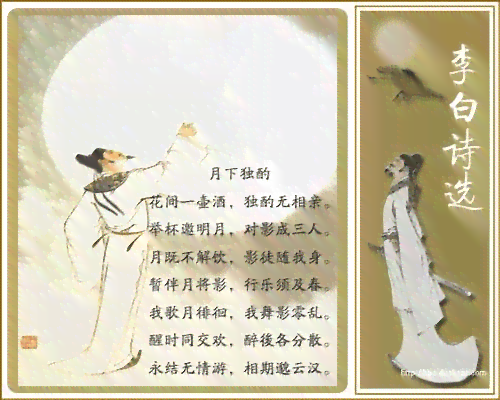 月下独酌
花间一壶酒，独酌无相亲。
举杯邀明月，对影成三人。
月既不解饮，影徒随我身。
暂伴月将影，行乐须及春。
我歌月徘徊，我舞影零乱。
醒时同交欢，醉後各分散。
永结无情游，相期邈云汉。
李白诗选